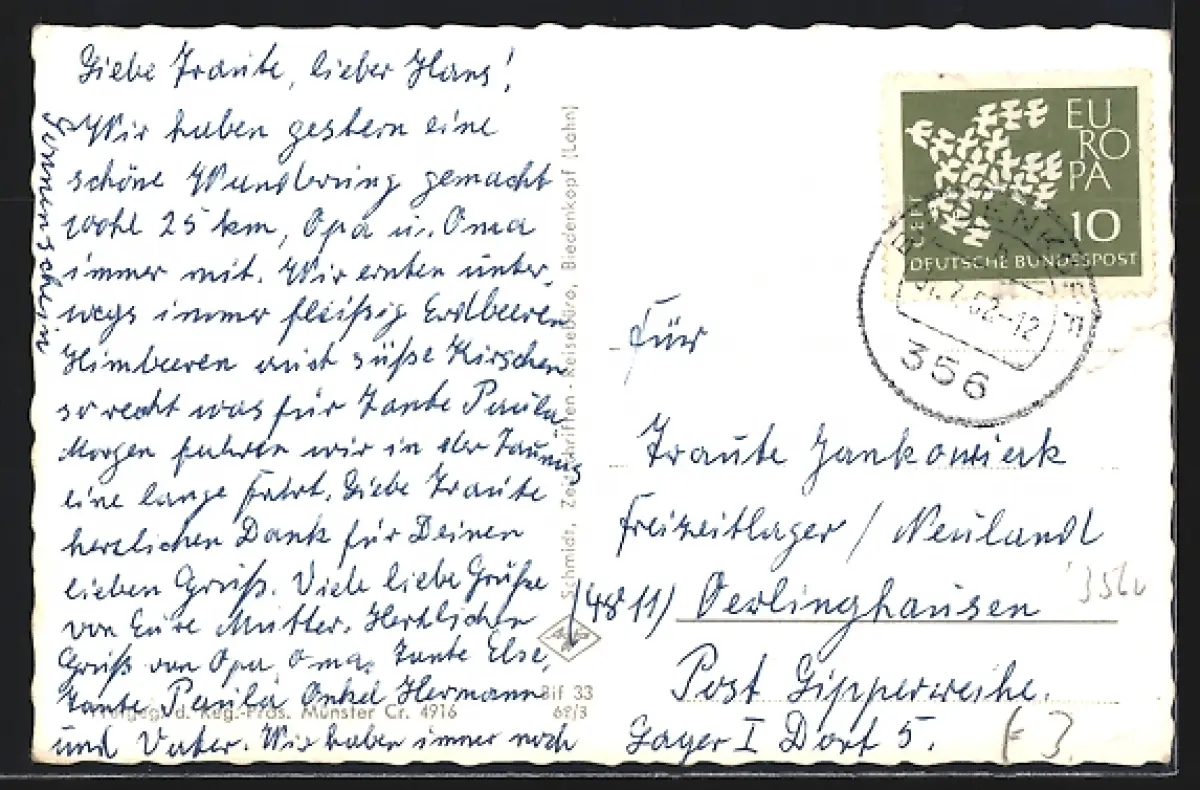 Liebe Traute, lieber Hans!
Wir haben gestern eine
schöne Wanderung gemacht
wohl 25 km, Opa u. Oma
immer mit. Wir ernten unter-
wegs immer fleißig Erdbeeren
Himbeeren auch süße Kirschen
so recht was für Tante Paula.
Morgen fahren wir in den Taunus
eine lange Fahrt. Liebe Traute
herzlichen Dank für Deinen
lieben Gruß. Viele liebe Grüße
von Eure Mutter. Herzlichen
Gruß von Opa, Oma, Tante Else,
Tante Paula Onkel Hermann
und Vater. Wir haben immer noch
Sonnenschein
Schmidt, Zeitschriften-Reisebüro, Biedenkopf (Lahn)
Reg.-Präs. Münster Cr. 4916
Bif 33
62/3
EUROPA
CEPT
10
DEUTSCHE BUNDESPOST
BIEDENKOPF
7.62-12
356
Für
Traute Jankowiak
Freizeitlager / Neuland
(4811) Oerlinghausen
Post Lipperreihe.
Lager I Dorf 5.